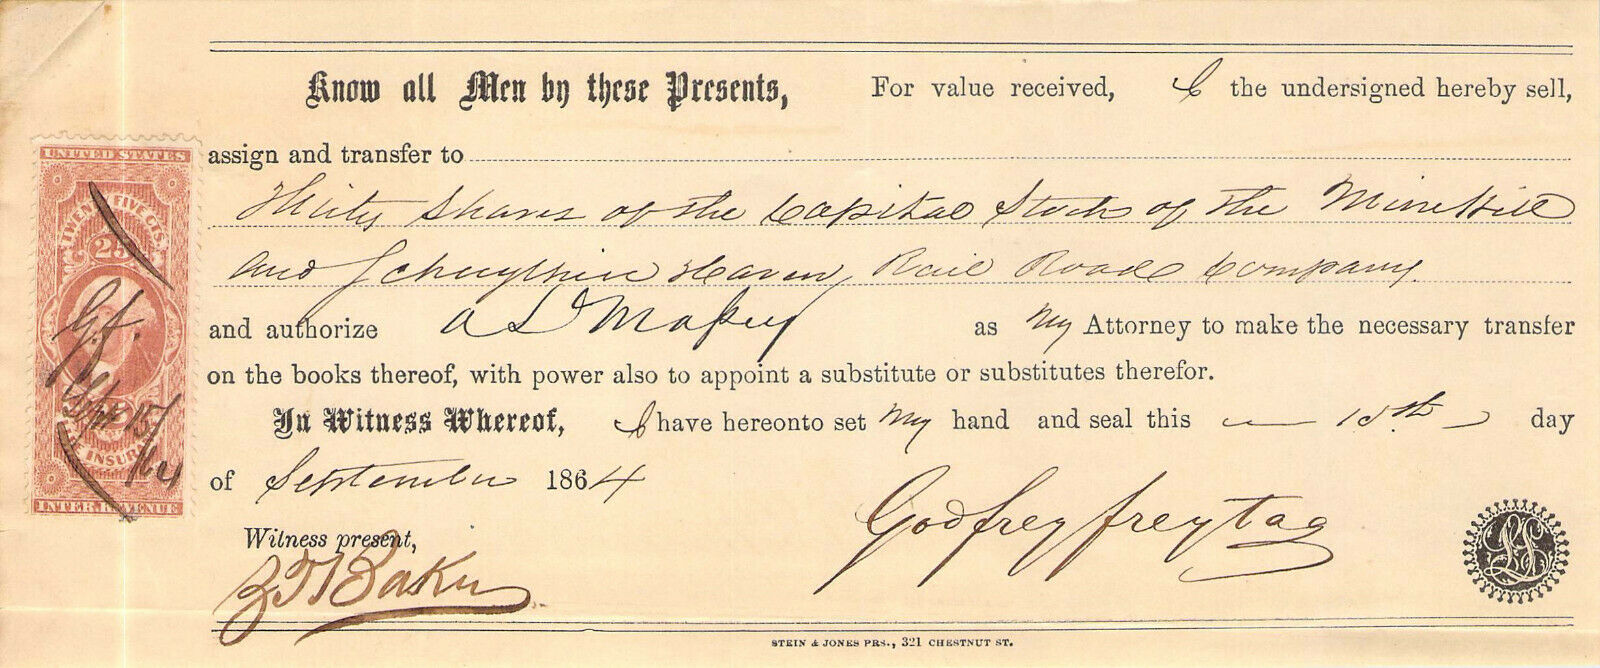 Know all Men by these Presents, For value received, I the undersigned hereby sell,
assign and transfer to
Thirty Shares of the Capital Stock of the Mine Hill
and Schuylkill Haven Rail Road Company.
and authorize A L as my Attorney to make the necessary transfer
on the books thereof, with power also to appoint a substitute or substitutes therefor.
In Witness Whereof, I have hereonto set my hand and seal this 15th day
of September 1864
Witness present,
Baker
Godfrey Freytag
LS
STEIN & JONES PRS., 321 CHESTNUT ST.
UNITED STATES
TWENTY FIVE CTS.
25
G.F.
Sept 15/
/64
INSUR
INTER. REVENUE